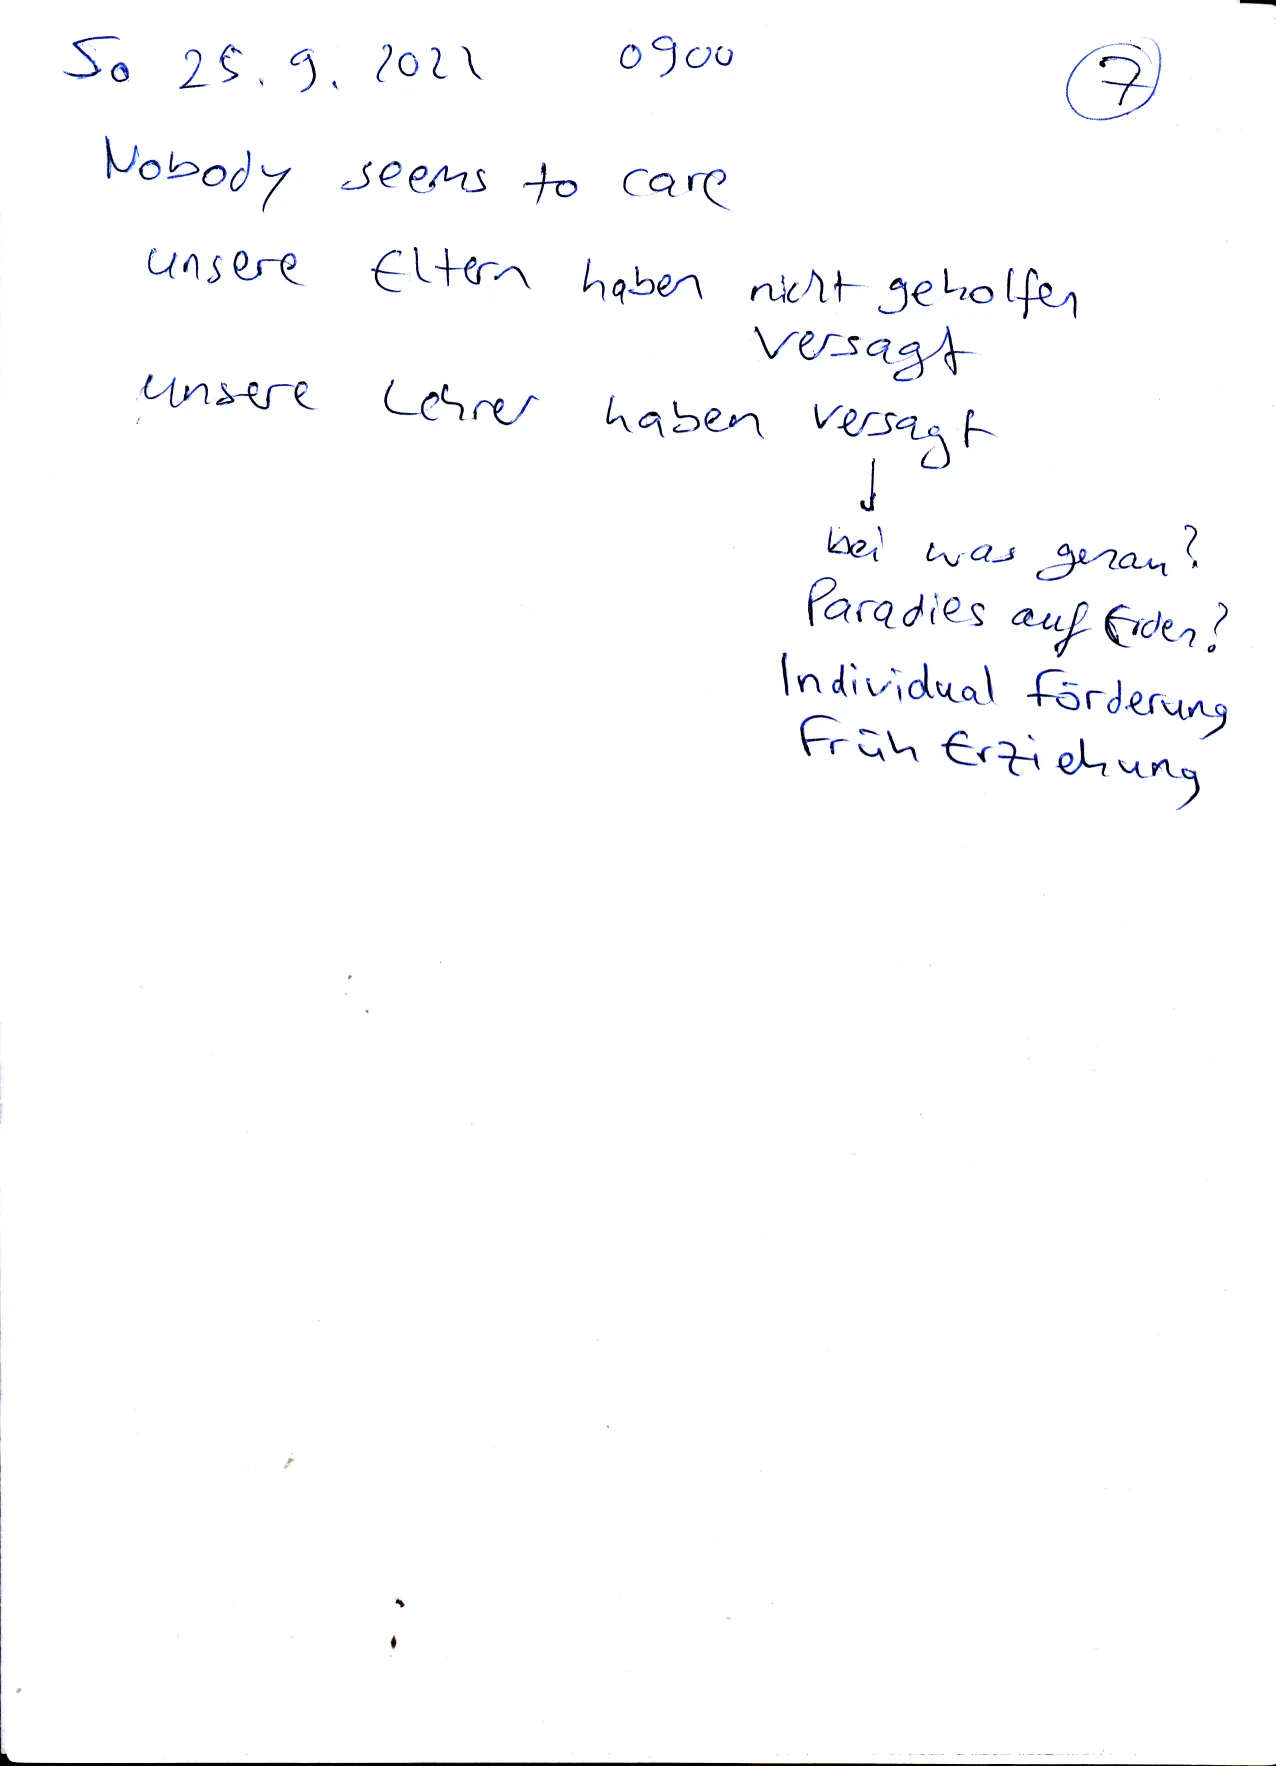 So 25.9.2022 0900 7
Nobody seems to care
unsere Eltern haben nicht geholfen
versagt
unsere Lehrer haben versagt
↓
bei was genau?
Paradies auf Erden?
Individual förderung
Früh Erziehung